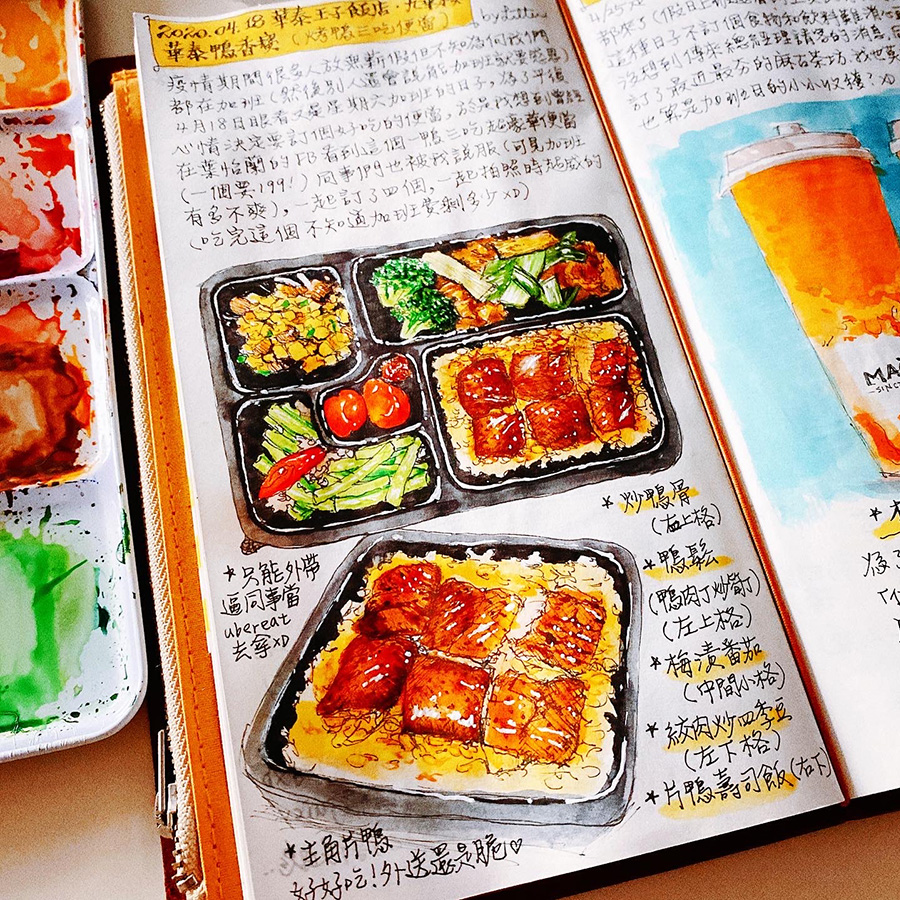 2020.04.18 華泰王子飯店·九華樓
華泰鴨香寶(烤鴨三吃便當)
疫情期間很多人放無薪假但不知為何我們
都在加班(然後別人還會說能加班就要感恩)
4月18日眼看又是星期六加班的日子,為了平復
心情決定要訂個好吃的便當,於是我想到曾經
在葉怡蘭的FB看到這個一鴨三吃起豪華便當
(一個要199!)同事們也被我說服(可見加班
有多不爽),一起訂了四個,一起拍照時超感的
(吃完這個不知道加班費剩多少XD)
*炒鴨骨
(右上格)
*鴨鬆
(鴨肉丁炒筍丁)
(左上格)
*梅漬番茄
(中間小格)
*絞肉炒四季豆
(左下格)
*片鴨壽司飯(右下)
*只能外帶
逼同事當
ubereat
去拿XD
*主角片鴨
好好吃!外送還是脆♡
4/25
都來了(假日上
這種日子不訂個食物和飲料難消心
沒想到傳來總經理請客的消息,
訂了最近最夯的麻古茶坊,我也
也算是加班日的小小收穫?XD
MA
SINC
*
為了